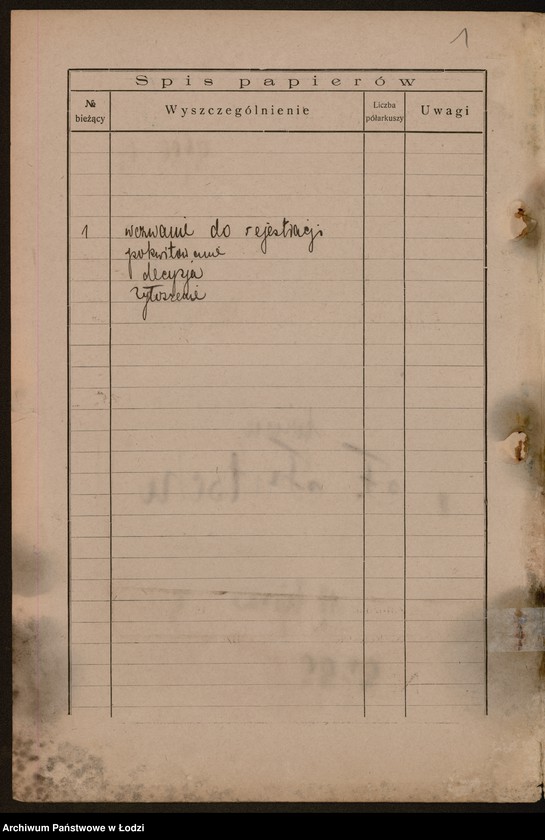 1
Spis papierów
№ bieżący
Wyszczególnienie
Liczba półarkuszy
Uwagi
1 wezwanie do rejestracji
pokwitowanie
decyzja
zgłoszenie
Archiwum Państwowe w Łodzi